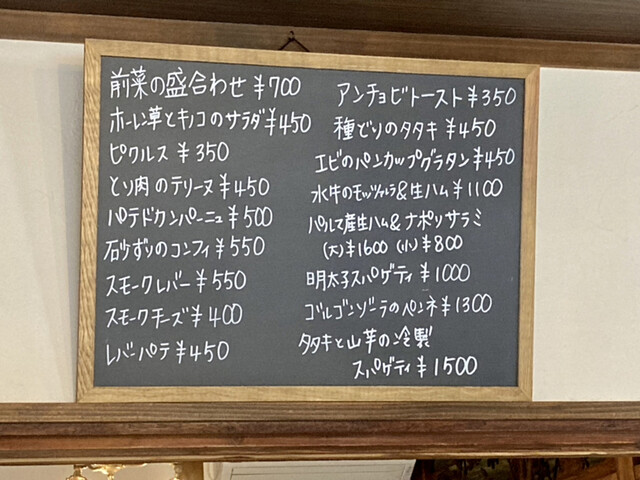 前菜の盛合わせ ¥700
ホーレン草とキノコのサラダ ¥450
ピクルス ¥350
とり肉のテリーヌ ¥450
パテドカンパーニュ ¥500
砂ずりのコンフィ ¥550
スモークレバー ¥550
スモークチーズ ¥400
レバーパテ ¥450
アンチョビトースト ¥350
種どりのタタキ ¥450
エビのパンカップグラタン ¥450
水牛のモッツァレラ&生ハム ¥1100
パルマ産生ハム&ナポリサラミ
(大) ¥1600 (小) ¥800
明太子スパゲティ ¥1000
ゴルゴンゾーラのペンネ ¥1300
タタキと山芋の冷製
スパゲティ ¥1500